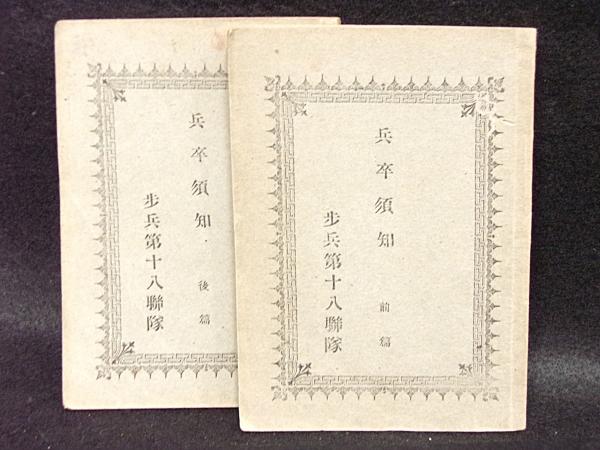 兵卒須知 前篇
歩兵第十八聯隊
兵卒須知 後篇
歩兵第十八聯隊